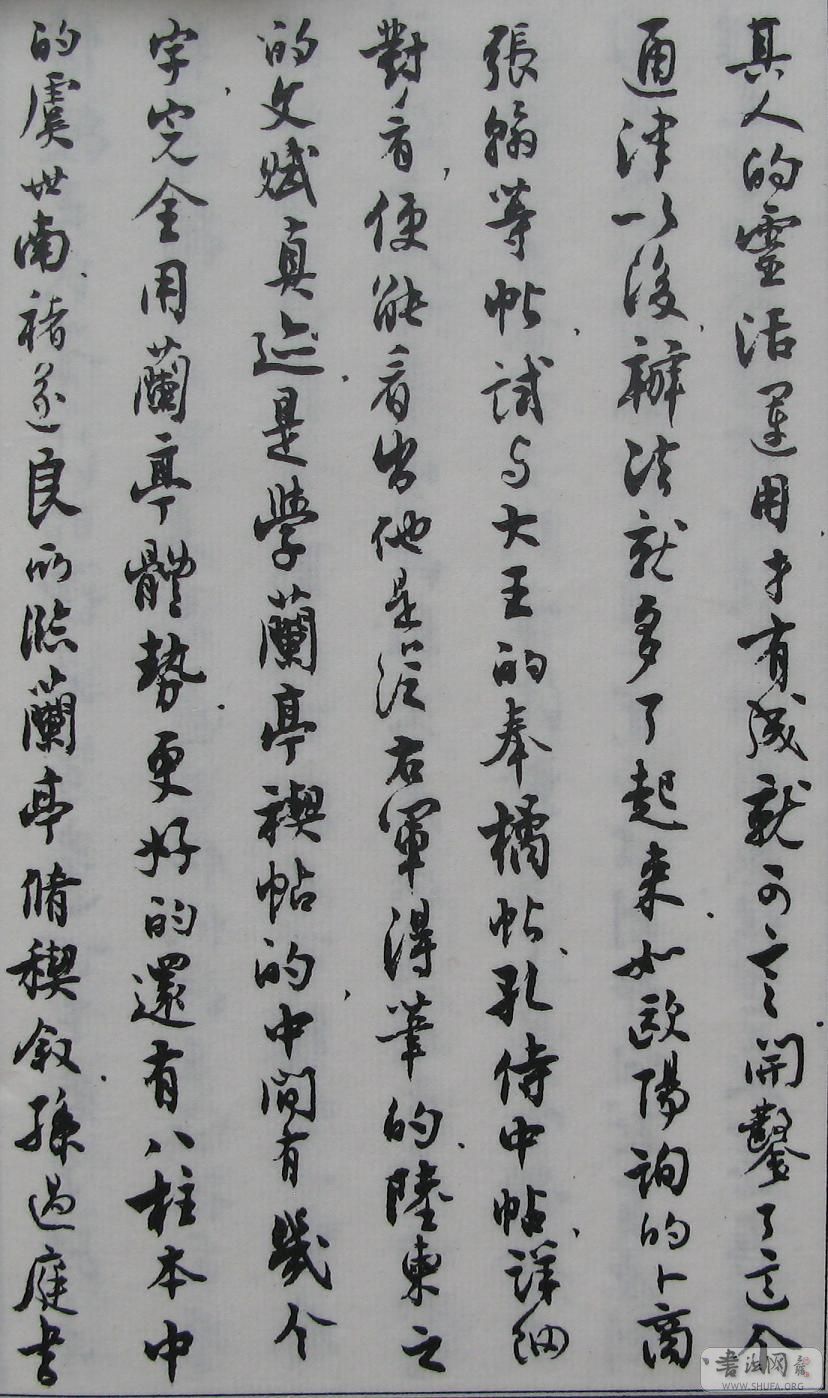 具人的靈活運用才有成就可言開鑿了這个
通津以後辦法就多了起来如歐陽詢的卜商
張翰等帖試与大王的奉橘帖孔侍中帖詳細
對看便能看出他是從右軍得筆的陸東之
的文賦真迹是學蘭亭禊帖的中間有幾个
字完全用蘭亭體勢更好的還有八柱本中
的虞世南褚遂良所臨蘭亭脩稧叙孫過庭書
书法网
WWW.SHUFA.ORG